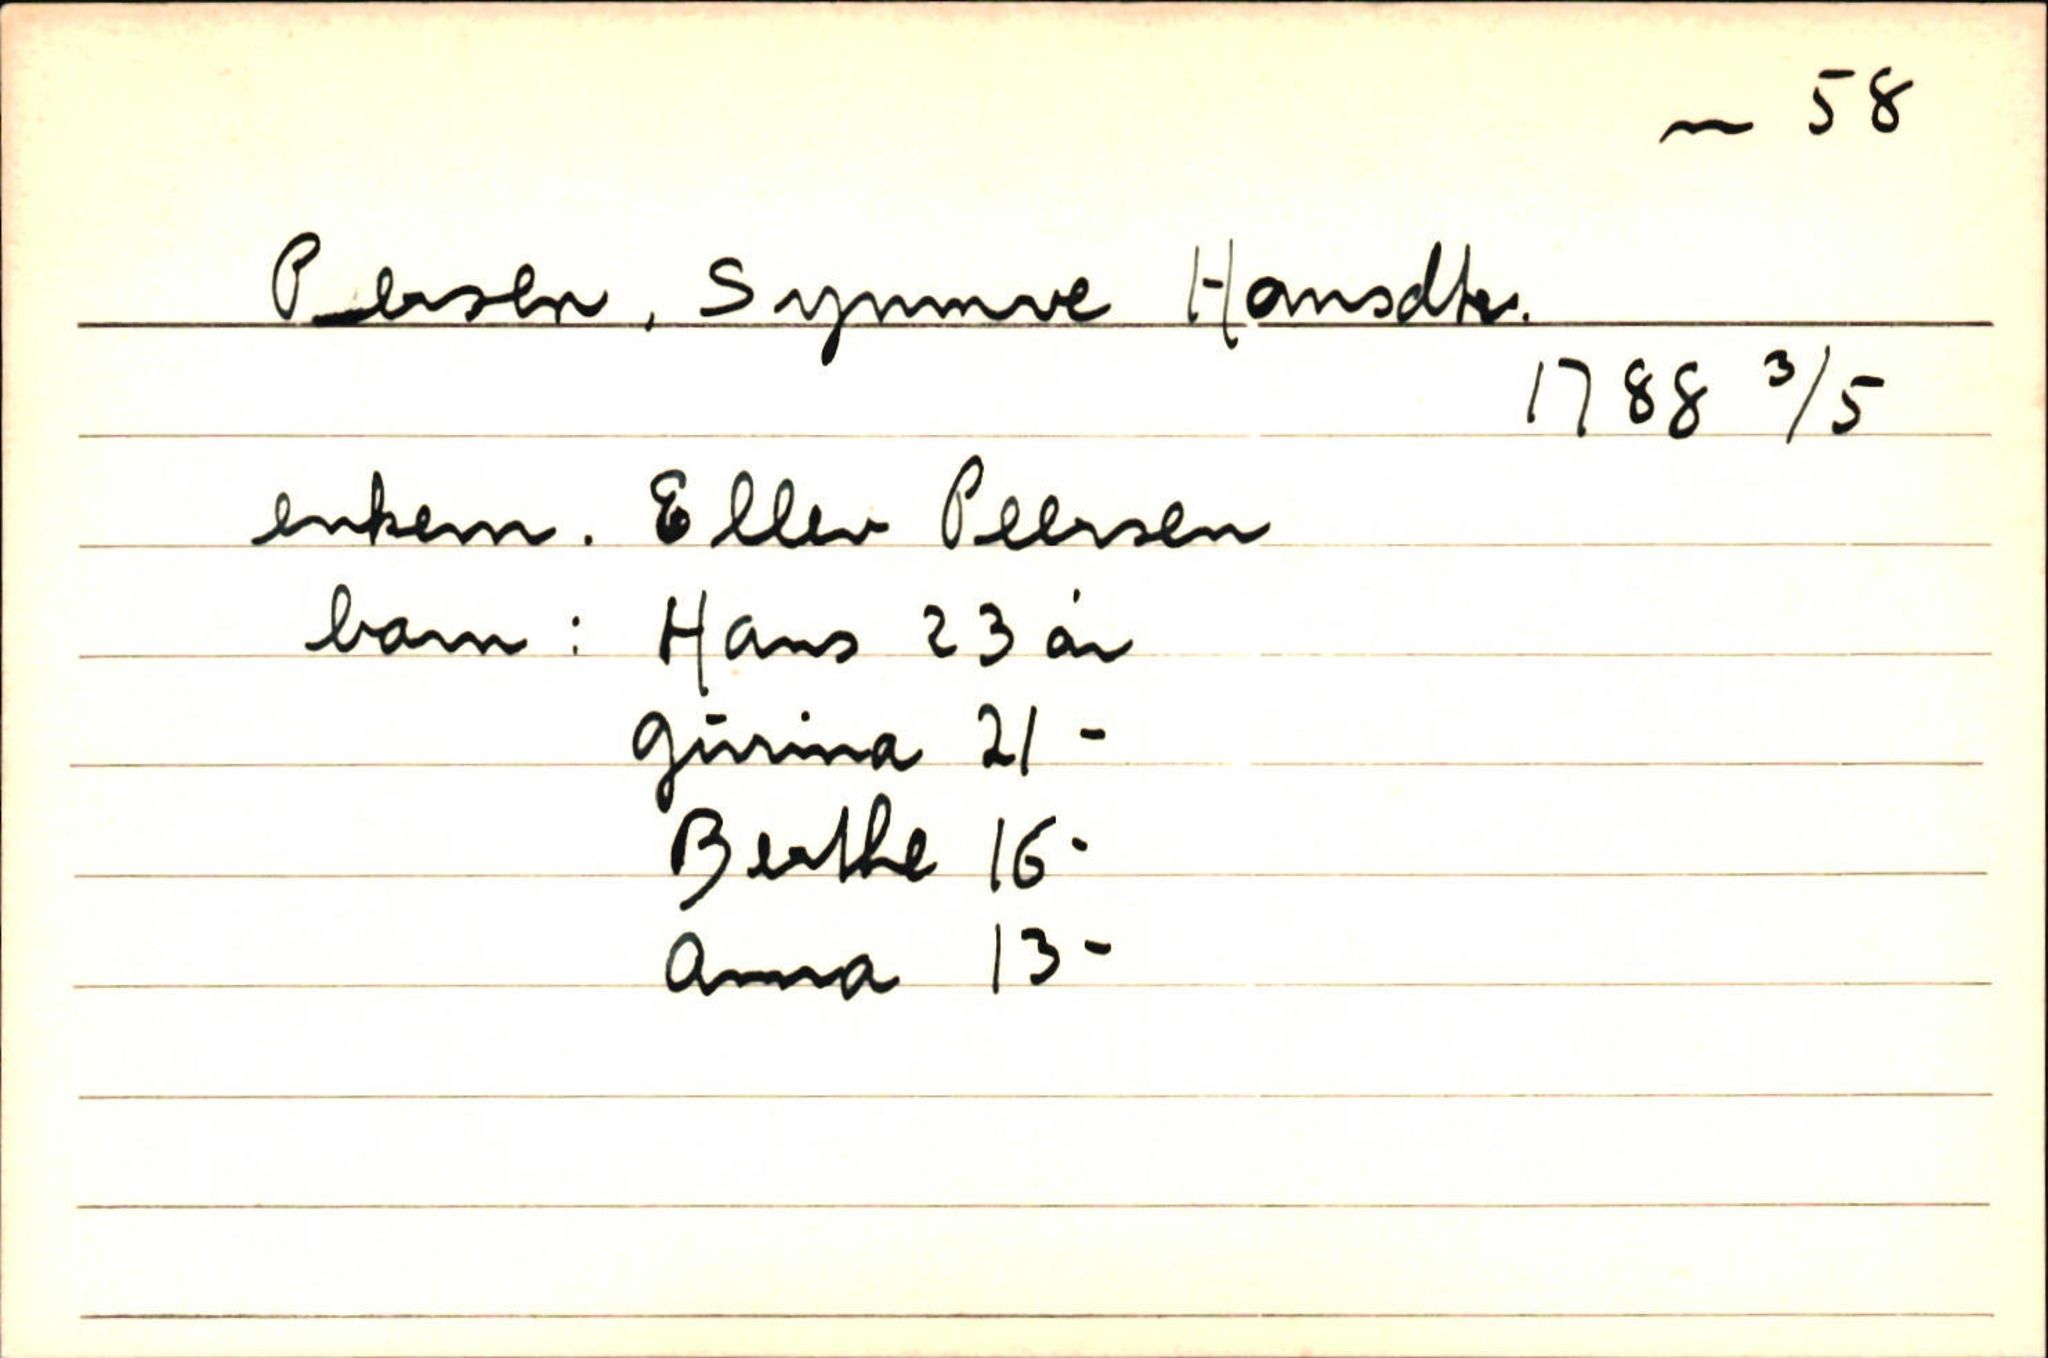 ~ 58
Persen, Synnove Hansdtr.
1788 3/5
enkem. Ellev Peersen
barn: Hans 23 år
Gurina 21 -
Berthe 16 -
Anna 13 -